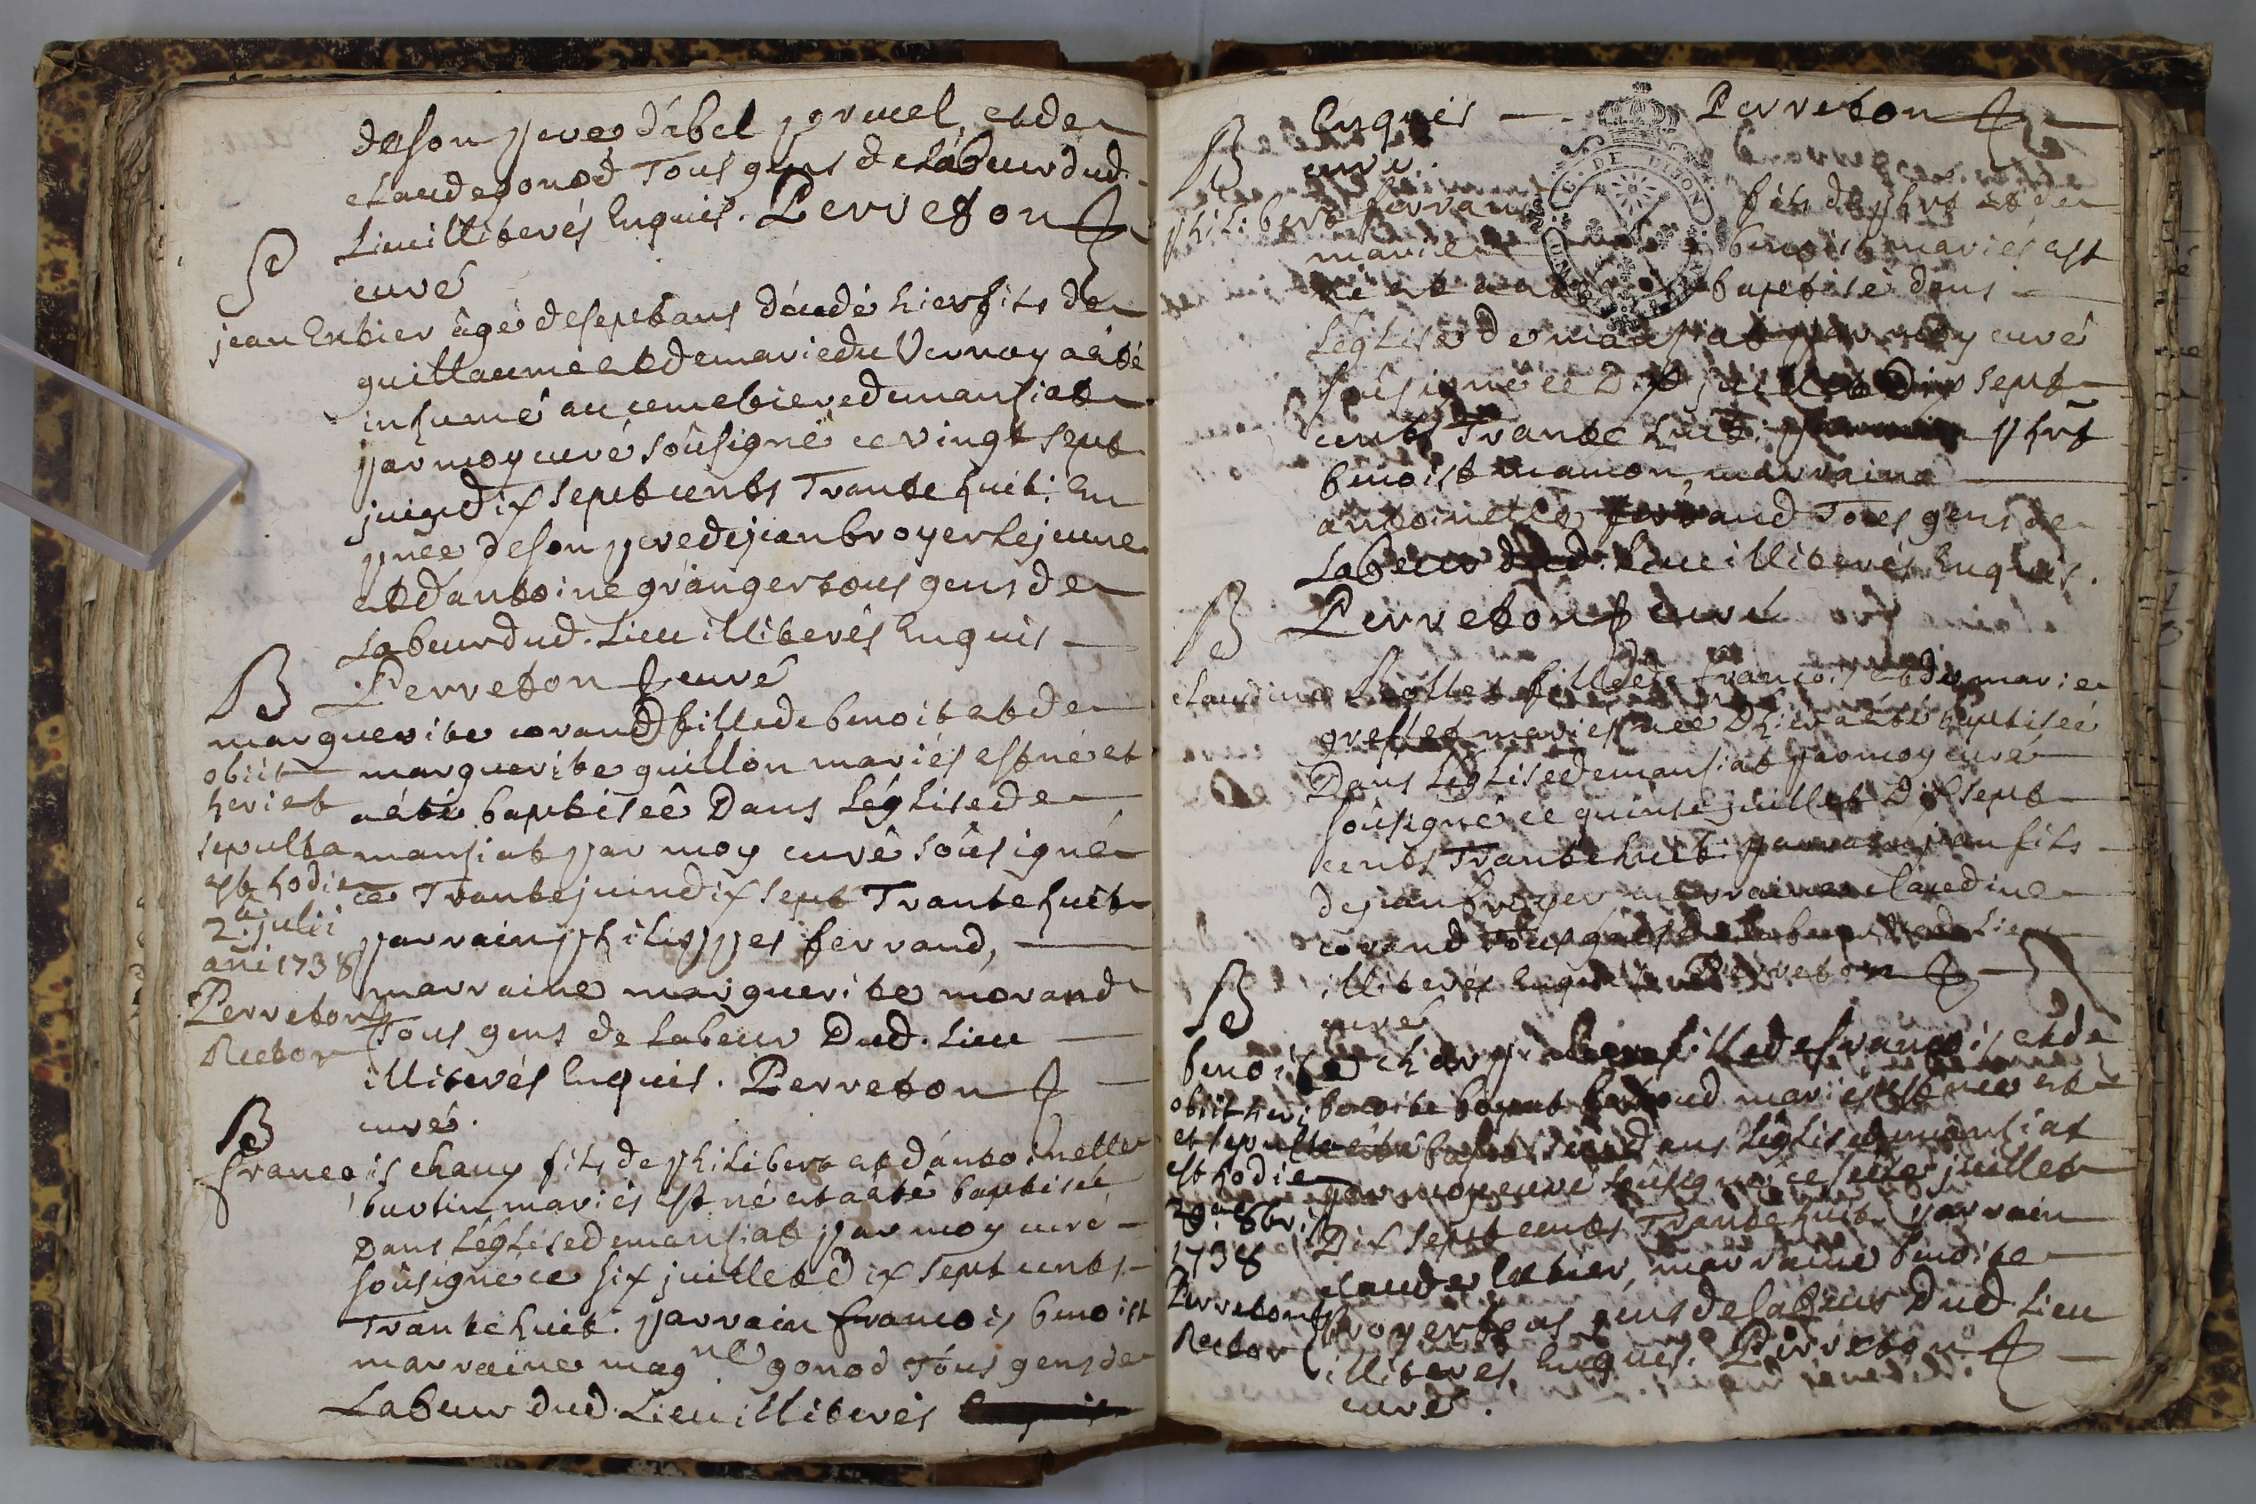 de son pere d'abel pruel, et de
claude gonod Tous gens de labeur dud.
Lieu illiterés Enquis. Perreton
curé
S
jean Erbier âgé de sept ans décédé hier fils de
guillaume et de marie du Vernay a été
inhumé au cemetiere de mansiat
par moy curé sousigné ce vingt sept
juin dix sept cents Trante huit. En
pñce de son pere de jean broyer le jeune
et d'antoine granger tous gens de
labeur dud. Lieu illiterés Enquis
Perreton curé
B
marguerite corand fille de benoit et de
marguerite guillon mariés est né et
a été baptiseé Dans l'église de
mansiat par moy curé sousigné
ce Trante juin dix sept Trante huit
parrain philippes ferrand,
marraine marguerite morand
Tous gens de labeur Dud. Lieu
illiterés Enquis. Perreton
curé.
obiit
heri et
sepulta
est hodie
2.a julii
añi 1738
Perreton
Rector
B
francois chany fils de philibert et d'antoinette
burtin mariés est né et a été baptisé
Dans l'église de mansiat par moy curé
sousigné ce six juillet dix sept cents
Trante huit. parrain francois benoist
marraine mag.ne gonod Tous gens de
Labeur dud. Lieu illiterés
Enquis Perreton
curé.
B
philibert ferrand fils de phrt et de
marie benoist mariés est
né et a été baptisé dans
l'église de mansiat par moy curé
sousigné ce Dix juillet Dix sept
cents Trante huit. phrt
benoist mamon, marraine
antoinette ferrand Tous gens de
Labeur dud. lieu illiterés Enquis.
Perreton curé
B
claudine fille de francois et de marie
greffet mariés née D'hier a été baptiseé
Dans l'église de mansiat par moy curé
sousigné ce quinse juillet Dix sept
cents Trante huit. parrain jean fils
de jean broyer marraine claudine
corand tous gens de labeur dud. Lieu
illiterés Enquis Perreton
curé
B
benoite fille de francois et de
benoite mariés est née et
a été baptiseé dans l'église de mansiat
par moy curé sousigné ce seize juillet
Dix sept cents Trante huit. parrain
claude, marraine benoite
broyer tous gens de labeur Dud. Lieu
illiterés, Enquis. Perreton
curé.
obiit heri
et sepulta
est hodie
8bris
1738
Perreton
Rector